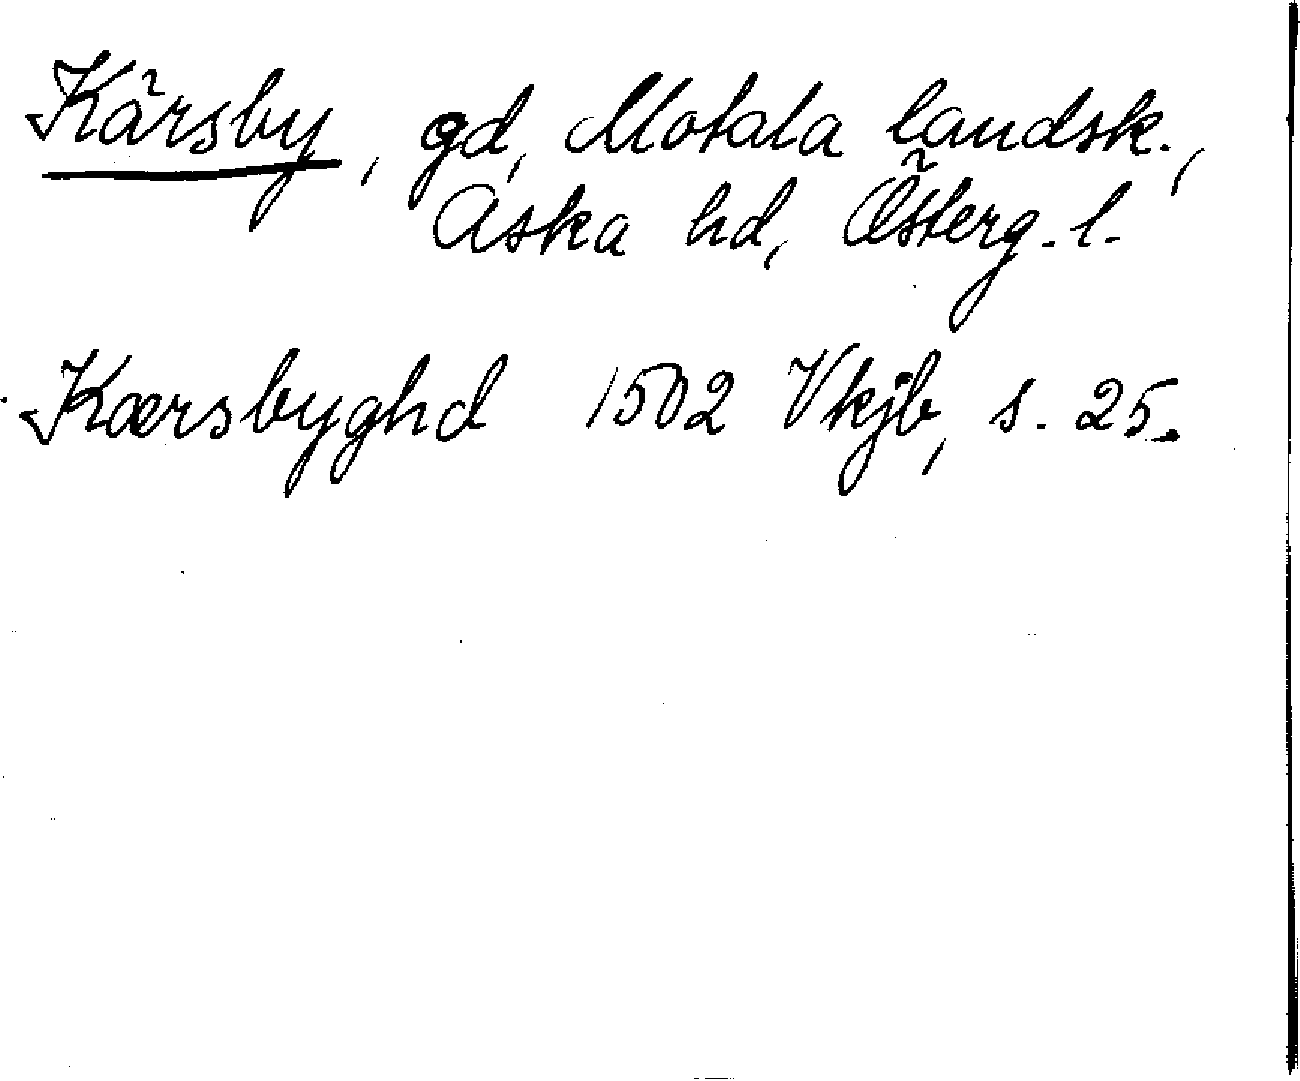 Kärsby, gd, Motala landsk.,
Aska hd, Österg. l.
Kærsbyghd 1502 Vkjb, s. 25.